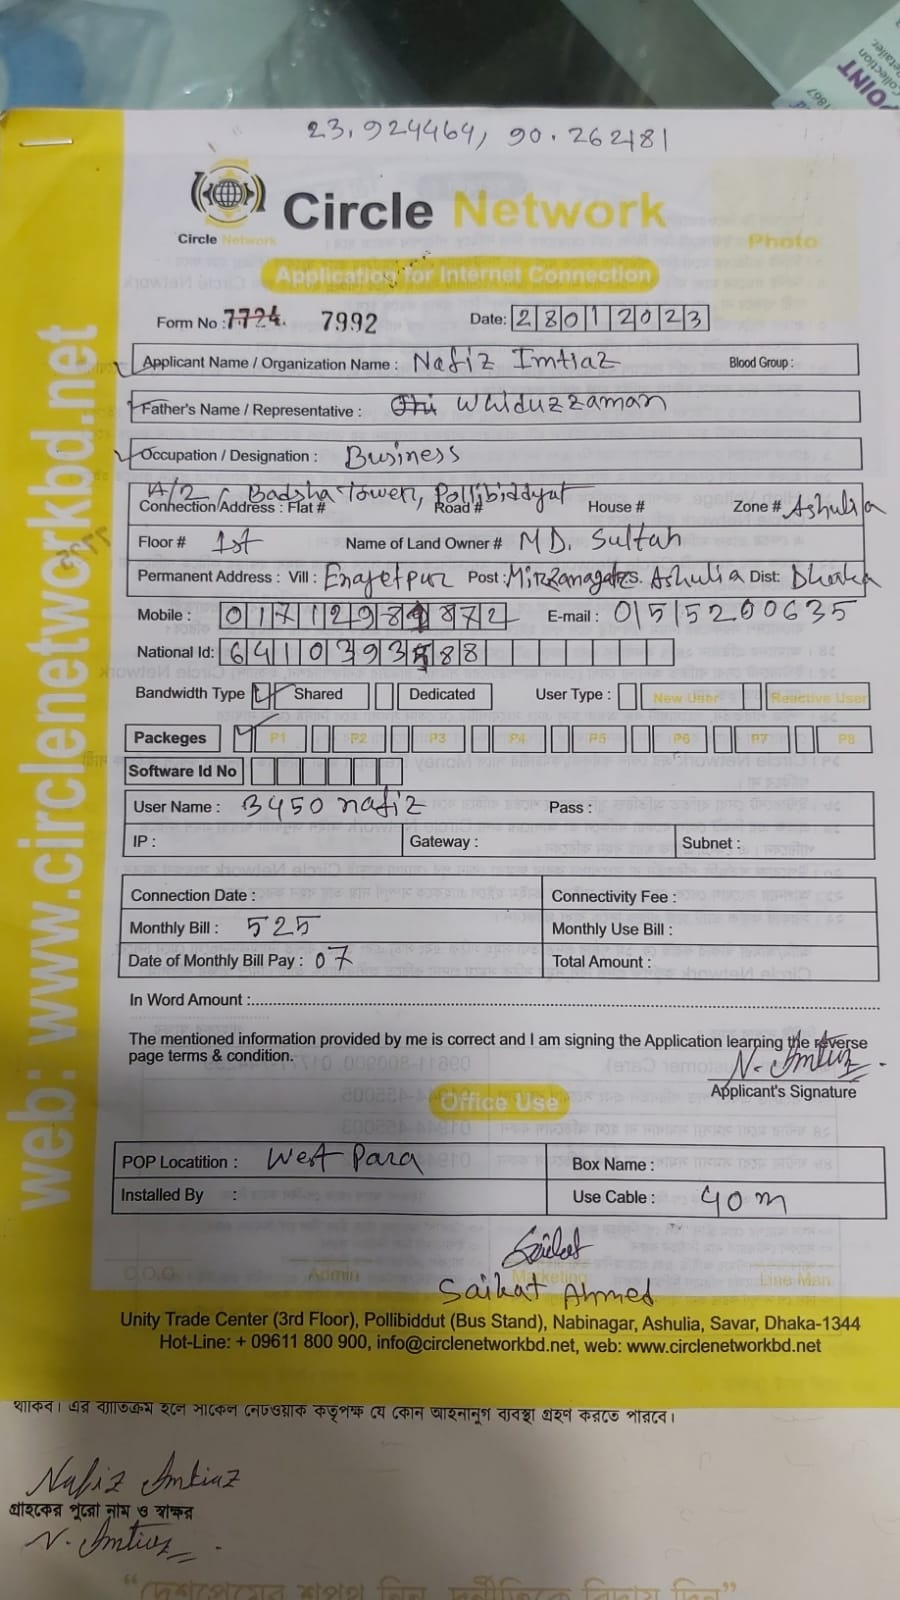 23.924464, 90.262181
Circle Network
Circle Network
Photo
Application for Internet Connection
Form No : 7724. 7992 Date: 28012023
Applicant Name / Organization Name : Nafiz Imtiaz Blood Group :
Father's Name / Representative : Whiduzzaman
Occupation / Designation : Business
A/2 Badsha Tower, Pollibiddyut
Connection Address : Flat # Road # House # Zone # Ashulia
Floor # 1st Name of Land Owner # MD. Sultan
Permanent Address : Vill : Enayetpur Post : Mirzanagar P.S. Ashulia Dist: Dhaka
Mobile : E-mail : 01515200635
National Id:
Bandwidth Type Shared Dedicated User Type : New User Reactive User
Packeges P1 P2 P3 P4 P5 P6 P7 P8
Software Id No
User Name : 3450 nafiz Pass :
IP : Gateway : Subnet :
Connection Date : Connectivity Fee :
Monthly Bill : 525 Monthly Use Bill :
Date of Monthly Bill Pay : 07 Total Amount :
In Word Amount :
The mentioned information provided by me is correct and I am signing the Application learning the reverse
page terms & condition.
N. Imtiaz
Applicant's Signature
Office Use
POP Locatition : West Para Box Name :
Installed By : Use Cable : 40 m
Saikat
C.O.O Admin Marketing Line Man
Saikat Ahmed
Unity Trade Center (3rd Floor), Pollibiddut (Bus Stand), Nabinagar, Ashulia, Savar, Dhaka-1344
Hot-Line: + 09611 800 900, info@circlenetworkbd.net, web: www.circlenetworkbd.net
web: www.circlenetworkbd.net
থাকিব। এর ব্যতিক্রম হলে সার্কেল নেটওয়ার্ক কর্তৃপক্ষ যে কোন আইনানুগ ব্যবস্থা গ্রহণ করতে পারবে।
Nafiz Imtiaz
গ্রাহকের পুরো নাম ও স্বাক্ষর
N. Imtiaz
“দেশপ্রেমের শপথ নিন, দুর্নীতিকে বিদায় দিন”
POINT